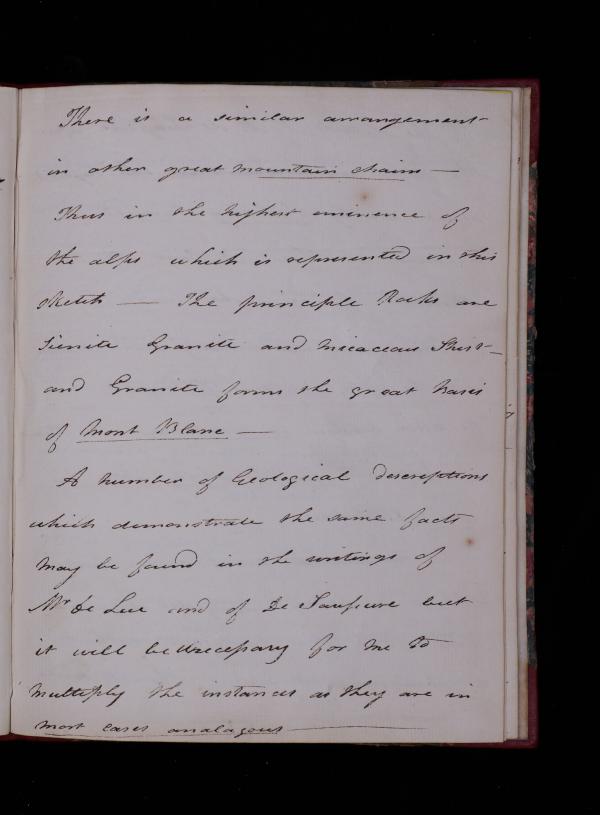 There is a similar arrangement
in other great mountain chains —
Thus in the highest eminence of
the alps which is represented in this
sketch — The principle Rocks are
Sienite Granite and micaceous Shist —
and Granite forms the great basis
of Mont Blanc —
A number of Geological descriptions
which demonstrate the same facts
may be found in the writings of
Mr de Luc and of De Saussure but
it will be unnecessary for me to
multiply the instances as they are in
most cases analagous —